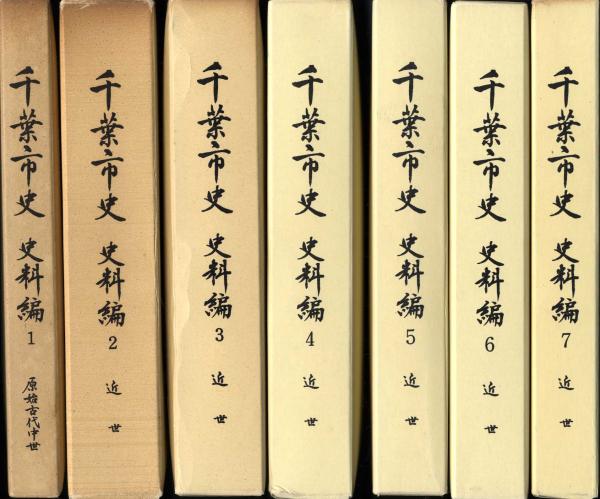 千葉市史 史料編 1 原始古代中世
千葉市史 史料編 2 近世
千葉市史 史料編 3 近世
千葉市史 史料編 4 近世
千葉市史 史料編 5 近世
千葉市史 史料編 6 近世
千葉市史 史料編 7 近世